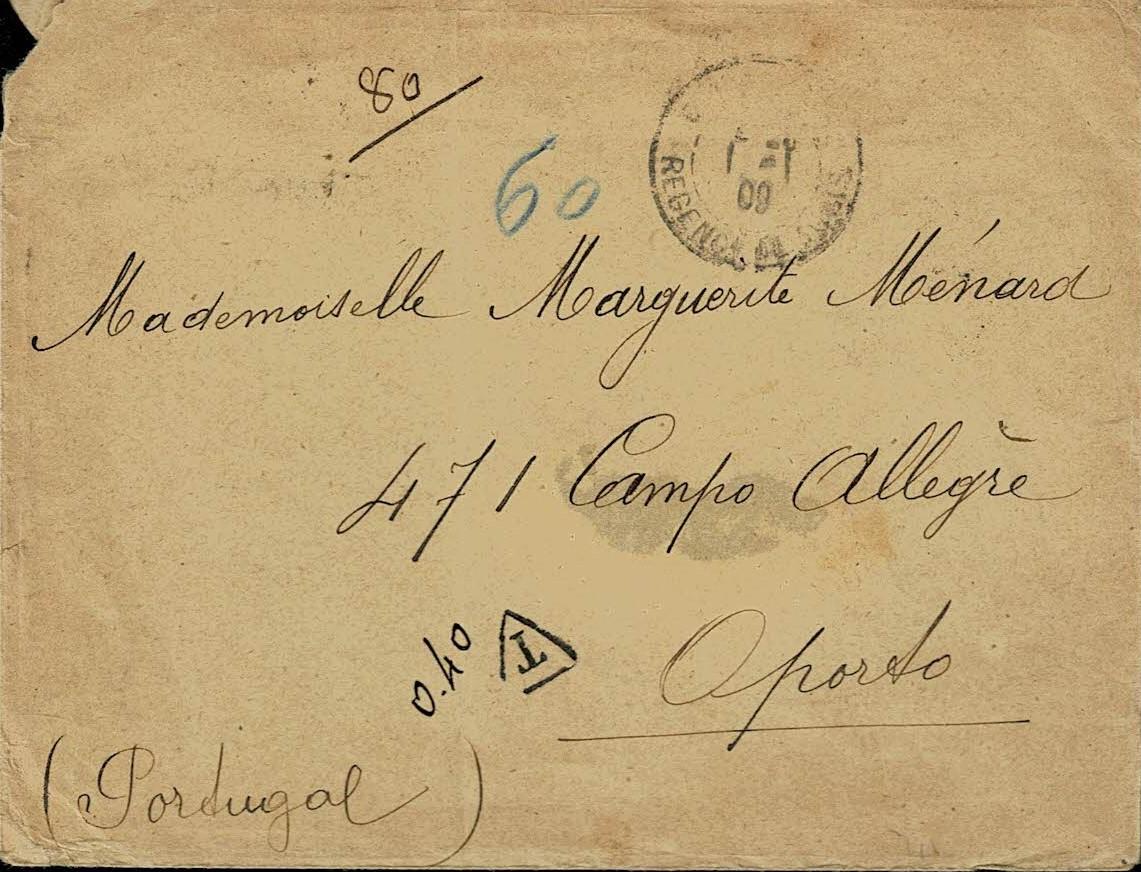 80
60
09
REGENCE DE TUNIS
Mademoiselle Marguerite Ménard
471 Campo Allègrè
Oporto
0.40
T
(Portugal)